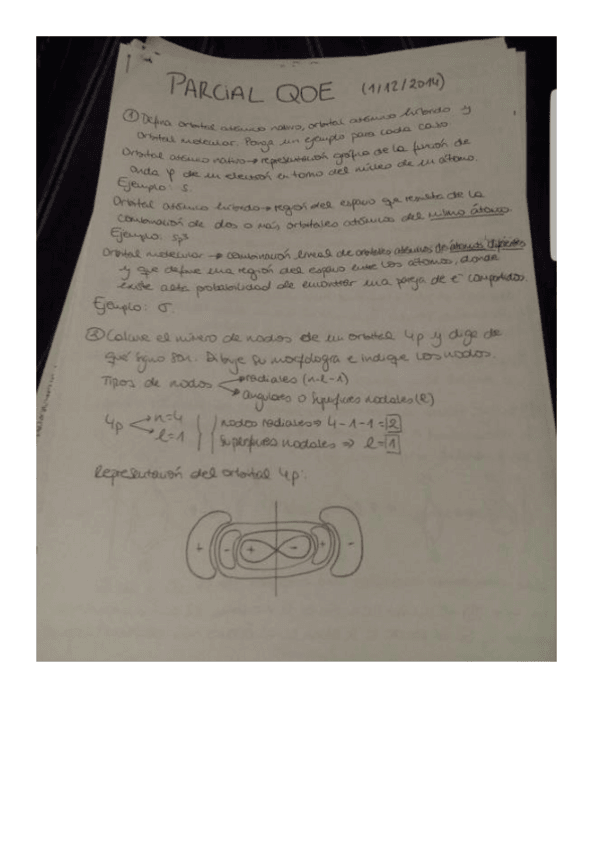 PARCIAL QOE (1/12/2014)
① Defina orbital atómico nativo, orbital atómico híbrido y
orbital molecular. Ponga un ejemplo para cada caso.
Orbital atómico nativo → representación gráfica de la función de
onda φ de un electrón en torno del núcleo de un átomo.
Ejemplo: s.
Orbital atómico híbrido → región del espacio que resulta de la
combinación de dos o más orbitales atómicos del mismo átomo.
Ejemplo: sp3
Orbital molecular → combinación lineal de orbitales atómicos de átomos diferentes
y que define una región del espacio entre los átomos, donde
existe alta probabilidad de encontrar una pareja de e⁻ compartidos.
Ejemplo: σ.
② Calcule el número de nodos de un orbital 4p y diga de
qué signo son. Dibuje su morfología e indique los nodos.
Tipos de nodos → radiales (n-l-1)
→ angulares o superficies nodales (l)
4p n=4 nodos radiales ⇒ 4-1-1=2
l=1 superficies nodales ⇒ l=1
Representación del orbital 4p:
+ - + - + -